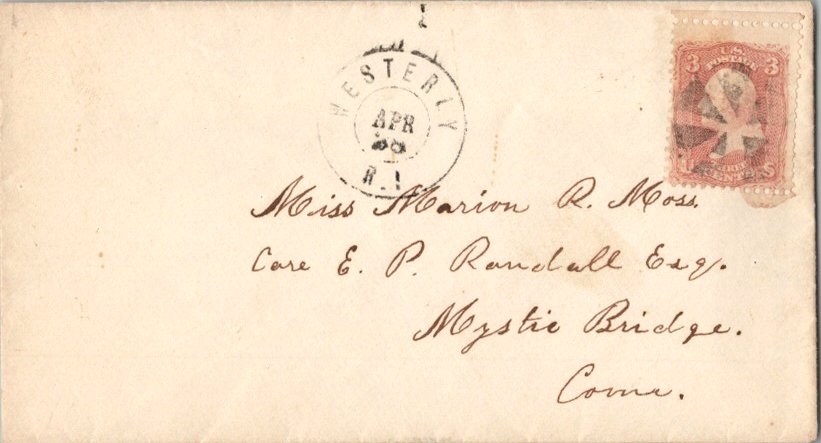 WESTERLY
APR
R.I.
3 U.S. 3
POSTAGE
Miss Marion R. Moss.
Care E. P. Randall Esq.
Mystic Bridge.
Conn.